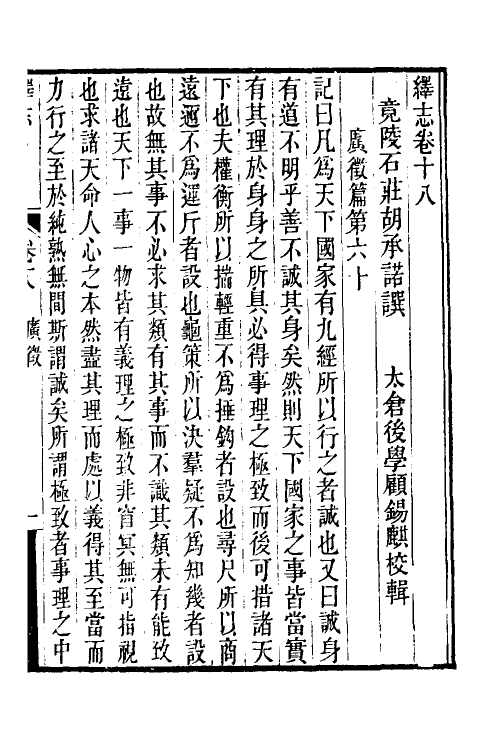 繹志卷十八
竟陵石莊胡承諾譔　太倉後學顧錫麒校輯
廣徵篇第六十
記曰凡爲天下國家有九經所以行之者誠也又曰誠身
有道不明乎善不誠其身矣然則天下國家之事皆當實
有其理於身身之所具必得事理之極致而後可措諸天
下也夫權衡所以揣輕重不爲捶鈎者設也尋尺所以商
遠邇不爲運斤者設也龜策所以決羣疑不爲知幾者設
也故無其事不必求其類有其事而不識其類未有能致
遠也天下一事一物皆有義理之極致非窅冥無可指視
也求諸天命人心之本然盡其理而處以義得其至當而
力行之至於純熟無間斯謂誠矣所謂極致者事理之中
卷十八　廣徵　一